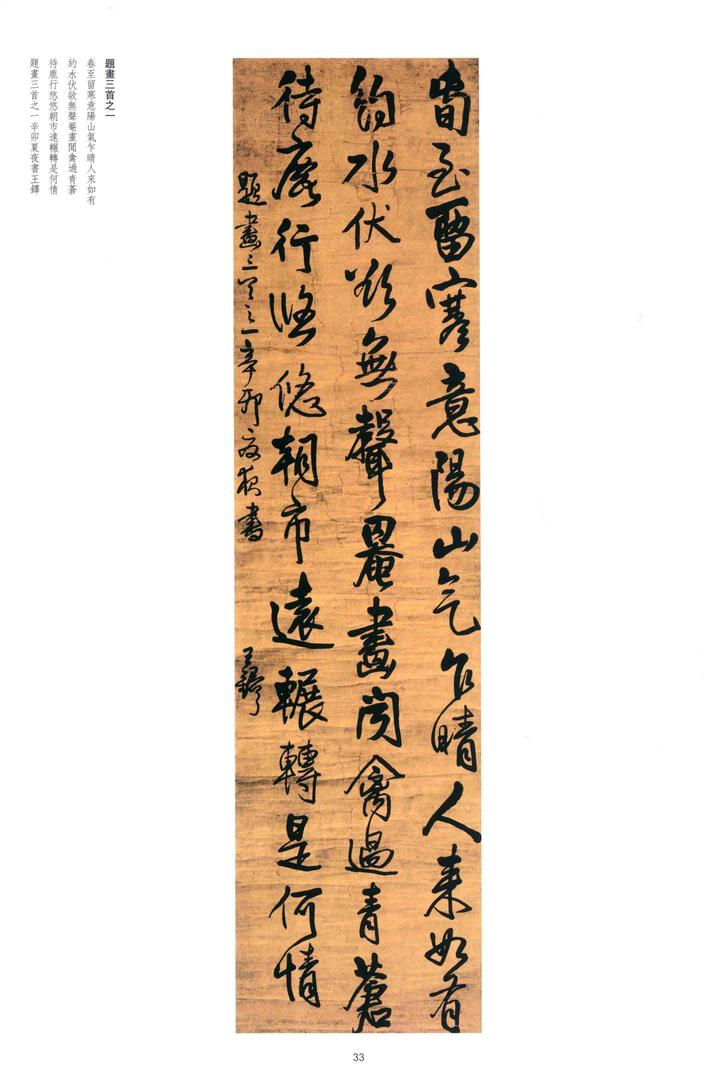 春至留寒意陽山气乍晴人來如有
約水伏欲無聲罨畫聞禽過青蒼
待鹿行悠悠朝市遠輾轉是何情
題畫三首之一辛卯夏夜書 王鐸
題畫三首之一
春至留寒意陽山氣乍晴人來如有
約水伏欲無聲罨畫聞禽過青蒼
待鹿行悠悠朝市遠輾轉是何情
題畫三首之一辛卯夏夜書王鐸
33